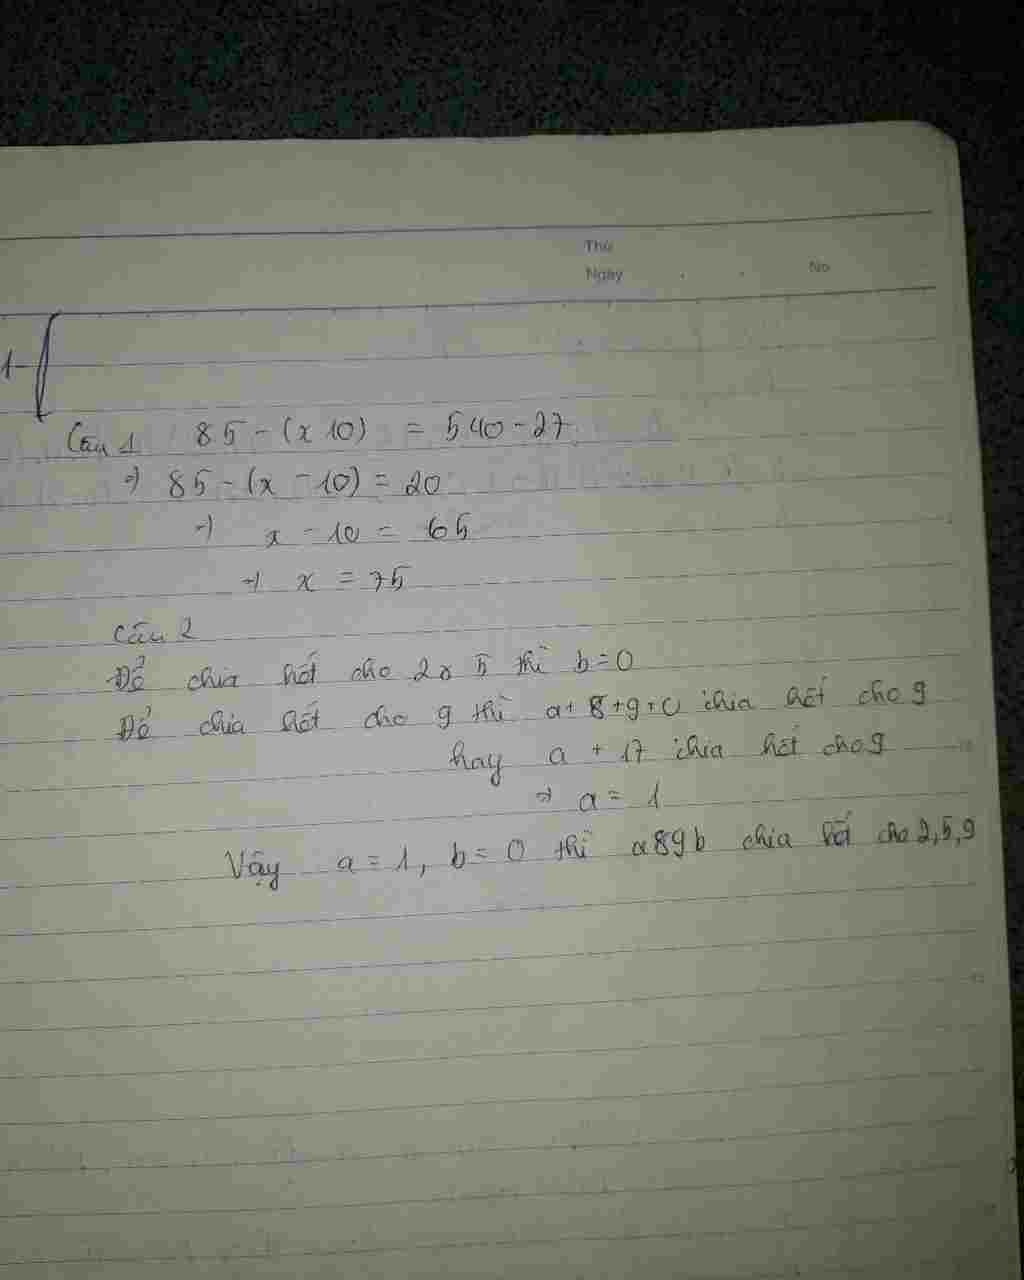 Thứ
Ngày . . No
1-
Câu 1 85 - (x 10) = 540 - 27
=> 85 - (x - 10) = 20
=> x - 10 = 65
=> x = 75
Câu 2
Để chia hết cho 2 5 thì b = 0
Để chia hết cho 9 thì a + 8 + 9 + 0 chia hết cho 9
hay a + 17 chia hết cho 9
=> a = 1
Vậy a = 1, b = 0 thì a89b chia hết cho 2, 5, 9